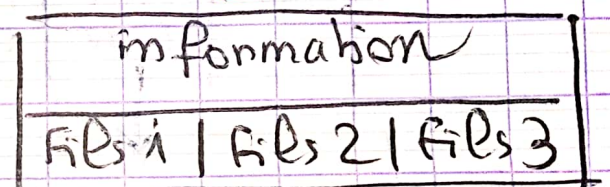 information
Fils 1 | Fils 2 | Fils 3